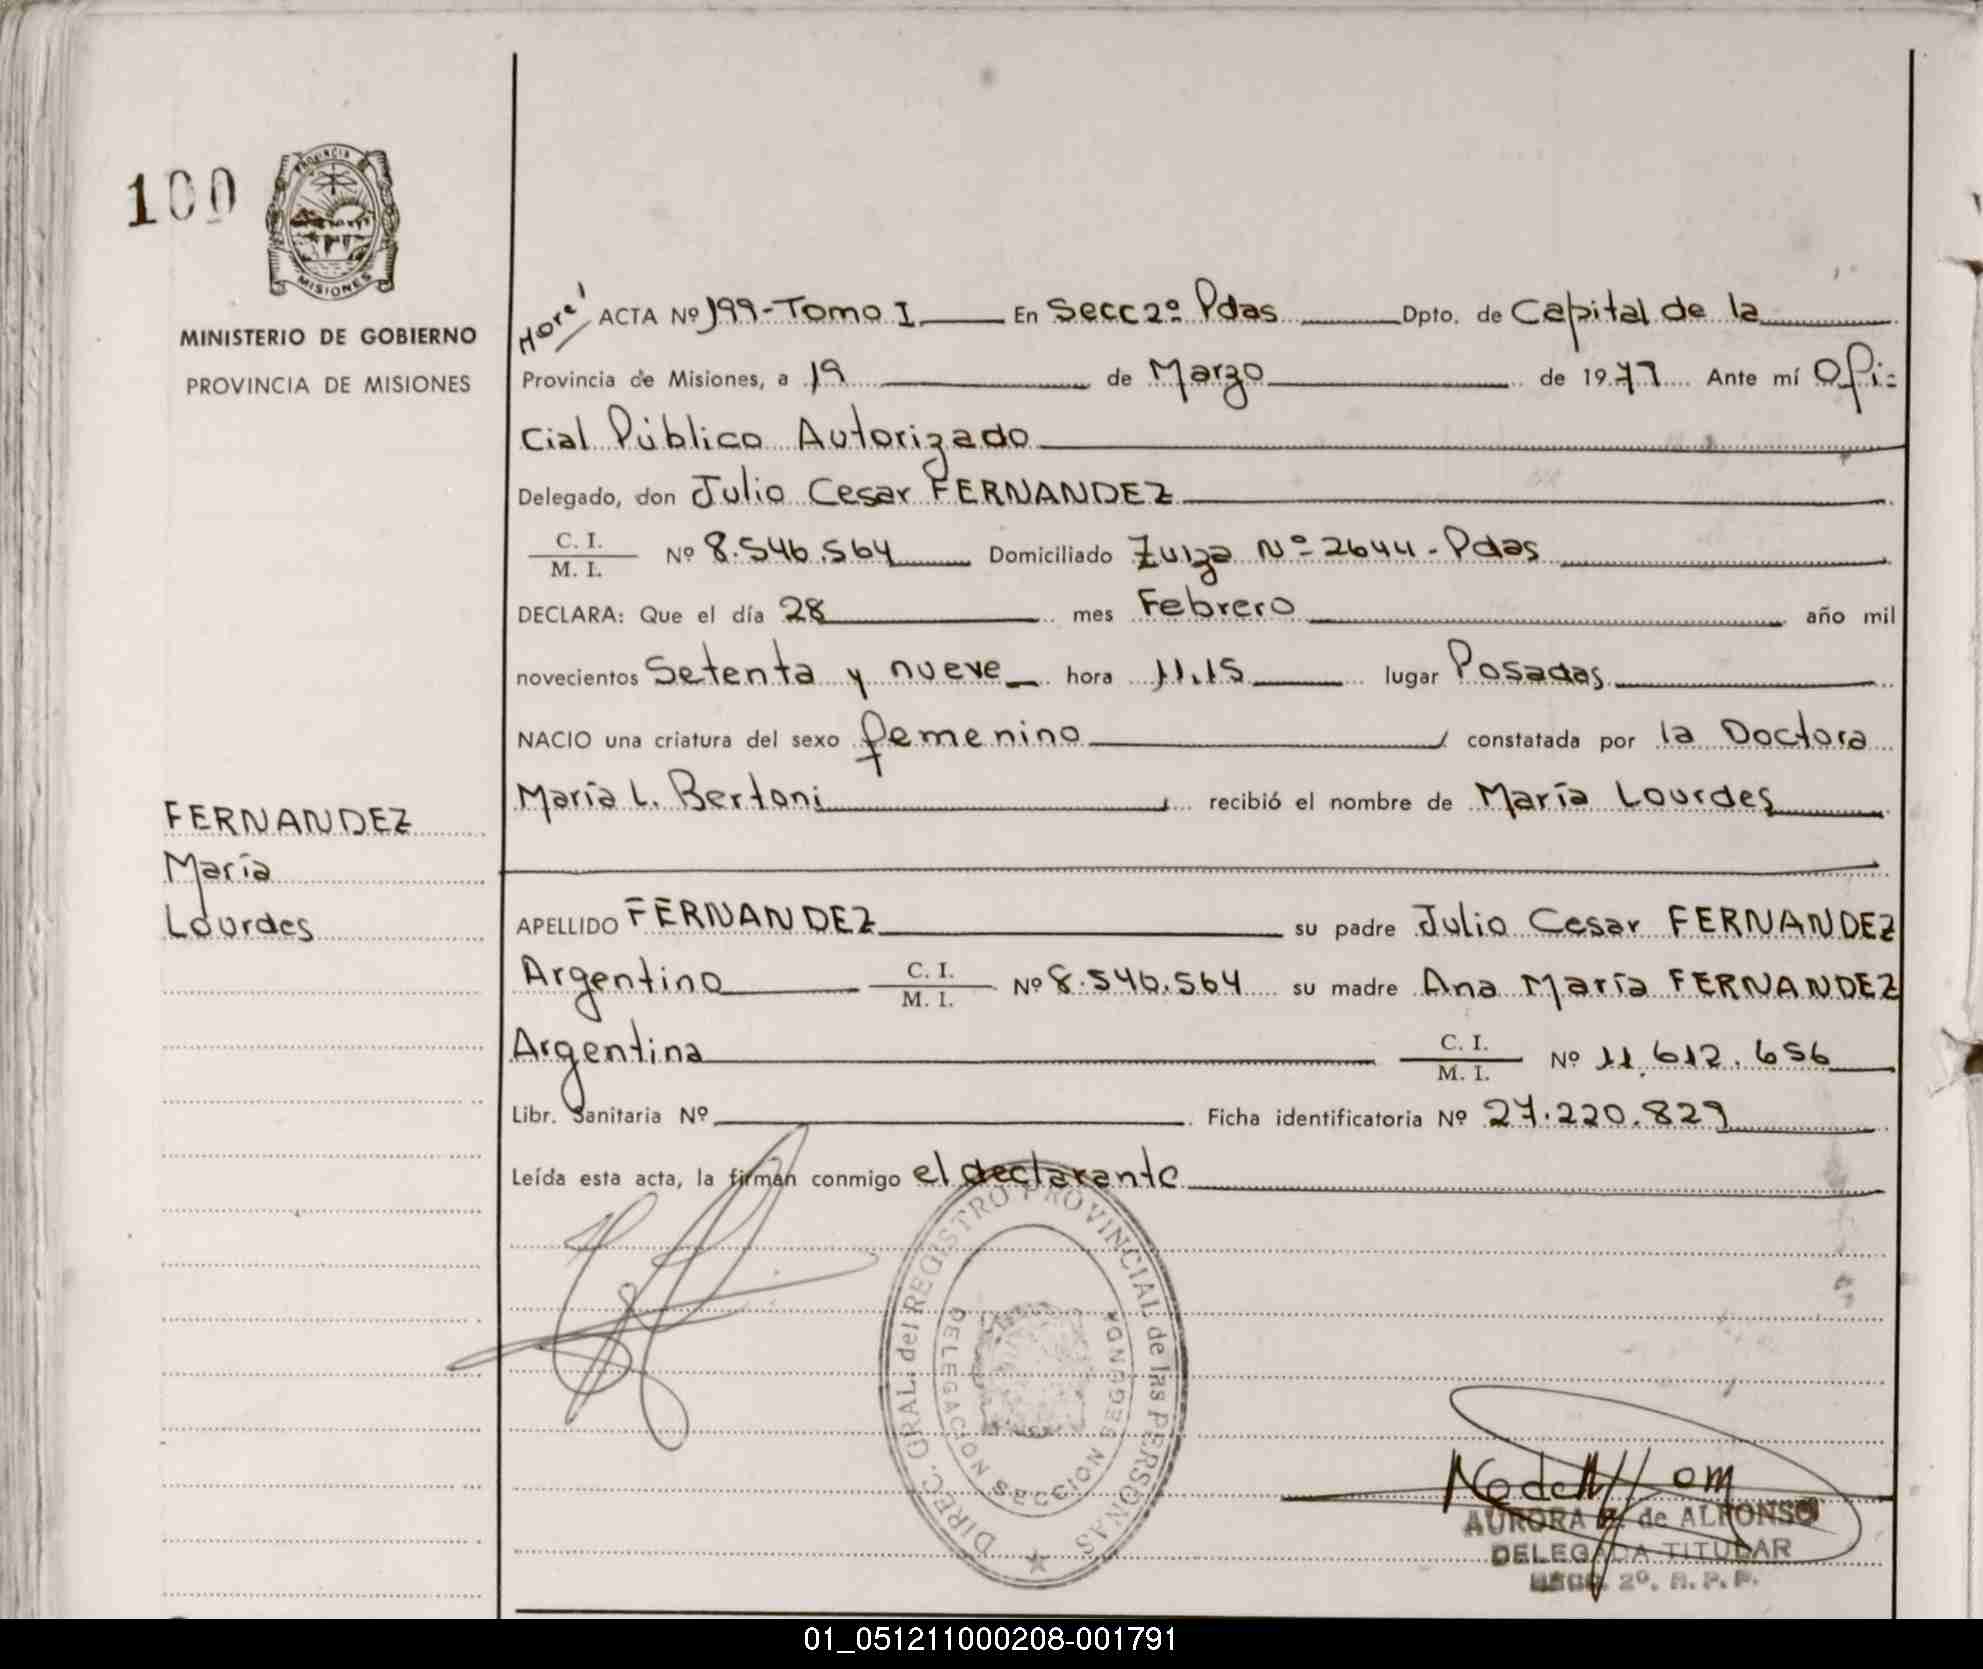 100
PROVINCIA DE
MISIONES
MINISTERIO DE GOBIERNO
PROVINCIA DE MISIONES
FERNANDEZ
María
Lourdes
ACTA Nº 199-Tomo I En Secc 2º Pdas Dpto. de Capital de la
Provincia de Misiones, a 19 de Marzo de 1977 Ante mí Ofi-
cial Público Autorizado
Delegado, don Julio Cesar FERNANDEZ
C. I.
M. I. Nº 8.546.564 Domiciliado Zuiza Nº 2644 - Pdas
DECLARA: Que el día 28 mes Febrero año mil
novecientos Setenta y nueve hora 11.15 lugar Posadas
NACIO una criatura del sexo femenino constatada por la Doctora
María L. Bertoni recibió el nombre de María Lourdes
APELLIDO FERNANDEZ su padre Julio Cesar FERNANDEZ
Argentino C. I.
M. I. Nº 8.546.564 su madre Ana María FERNANDEZ
Argentina C. I.
M. I. Nº 11.612.656
Libr. Sanitaria Nº Ficha identificatoria Nº 27.220.829
Leída esta acta, la firman conmigo el declarante
DIREC. GRAL. del REGISTRO PROVINCIAL de las PERSONAS
DELEGACION SECCION SEGUNDA
AURORA de ALFONSO
DELEGADA TITULAR
SECC. 2º. R. P. P.
01_051211000208-001791